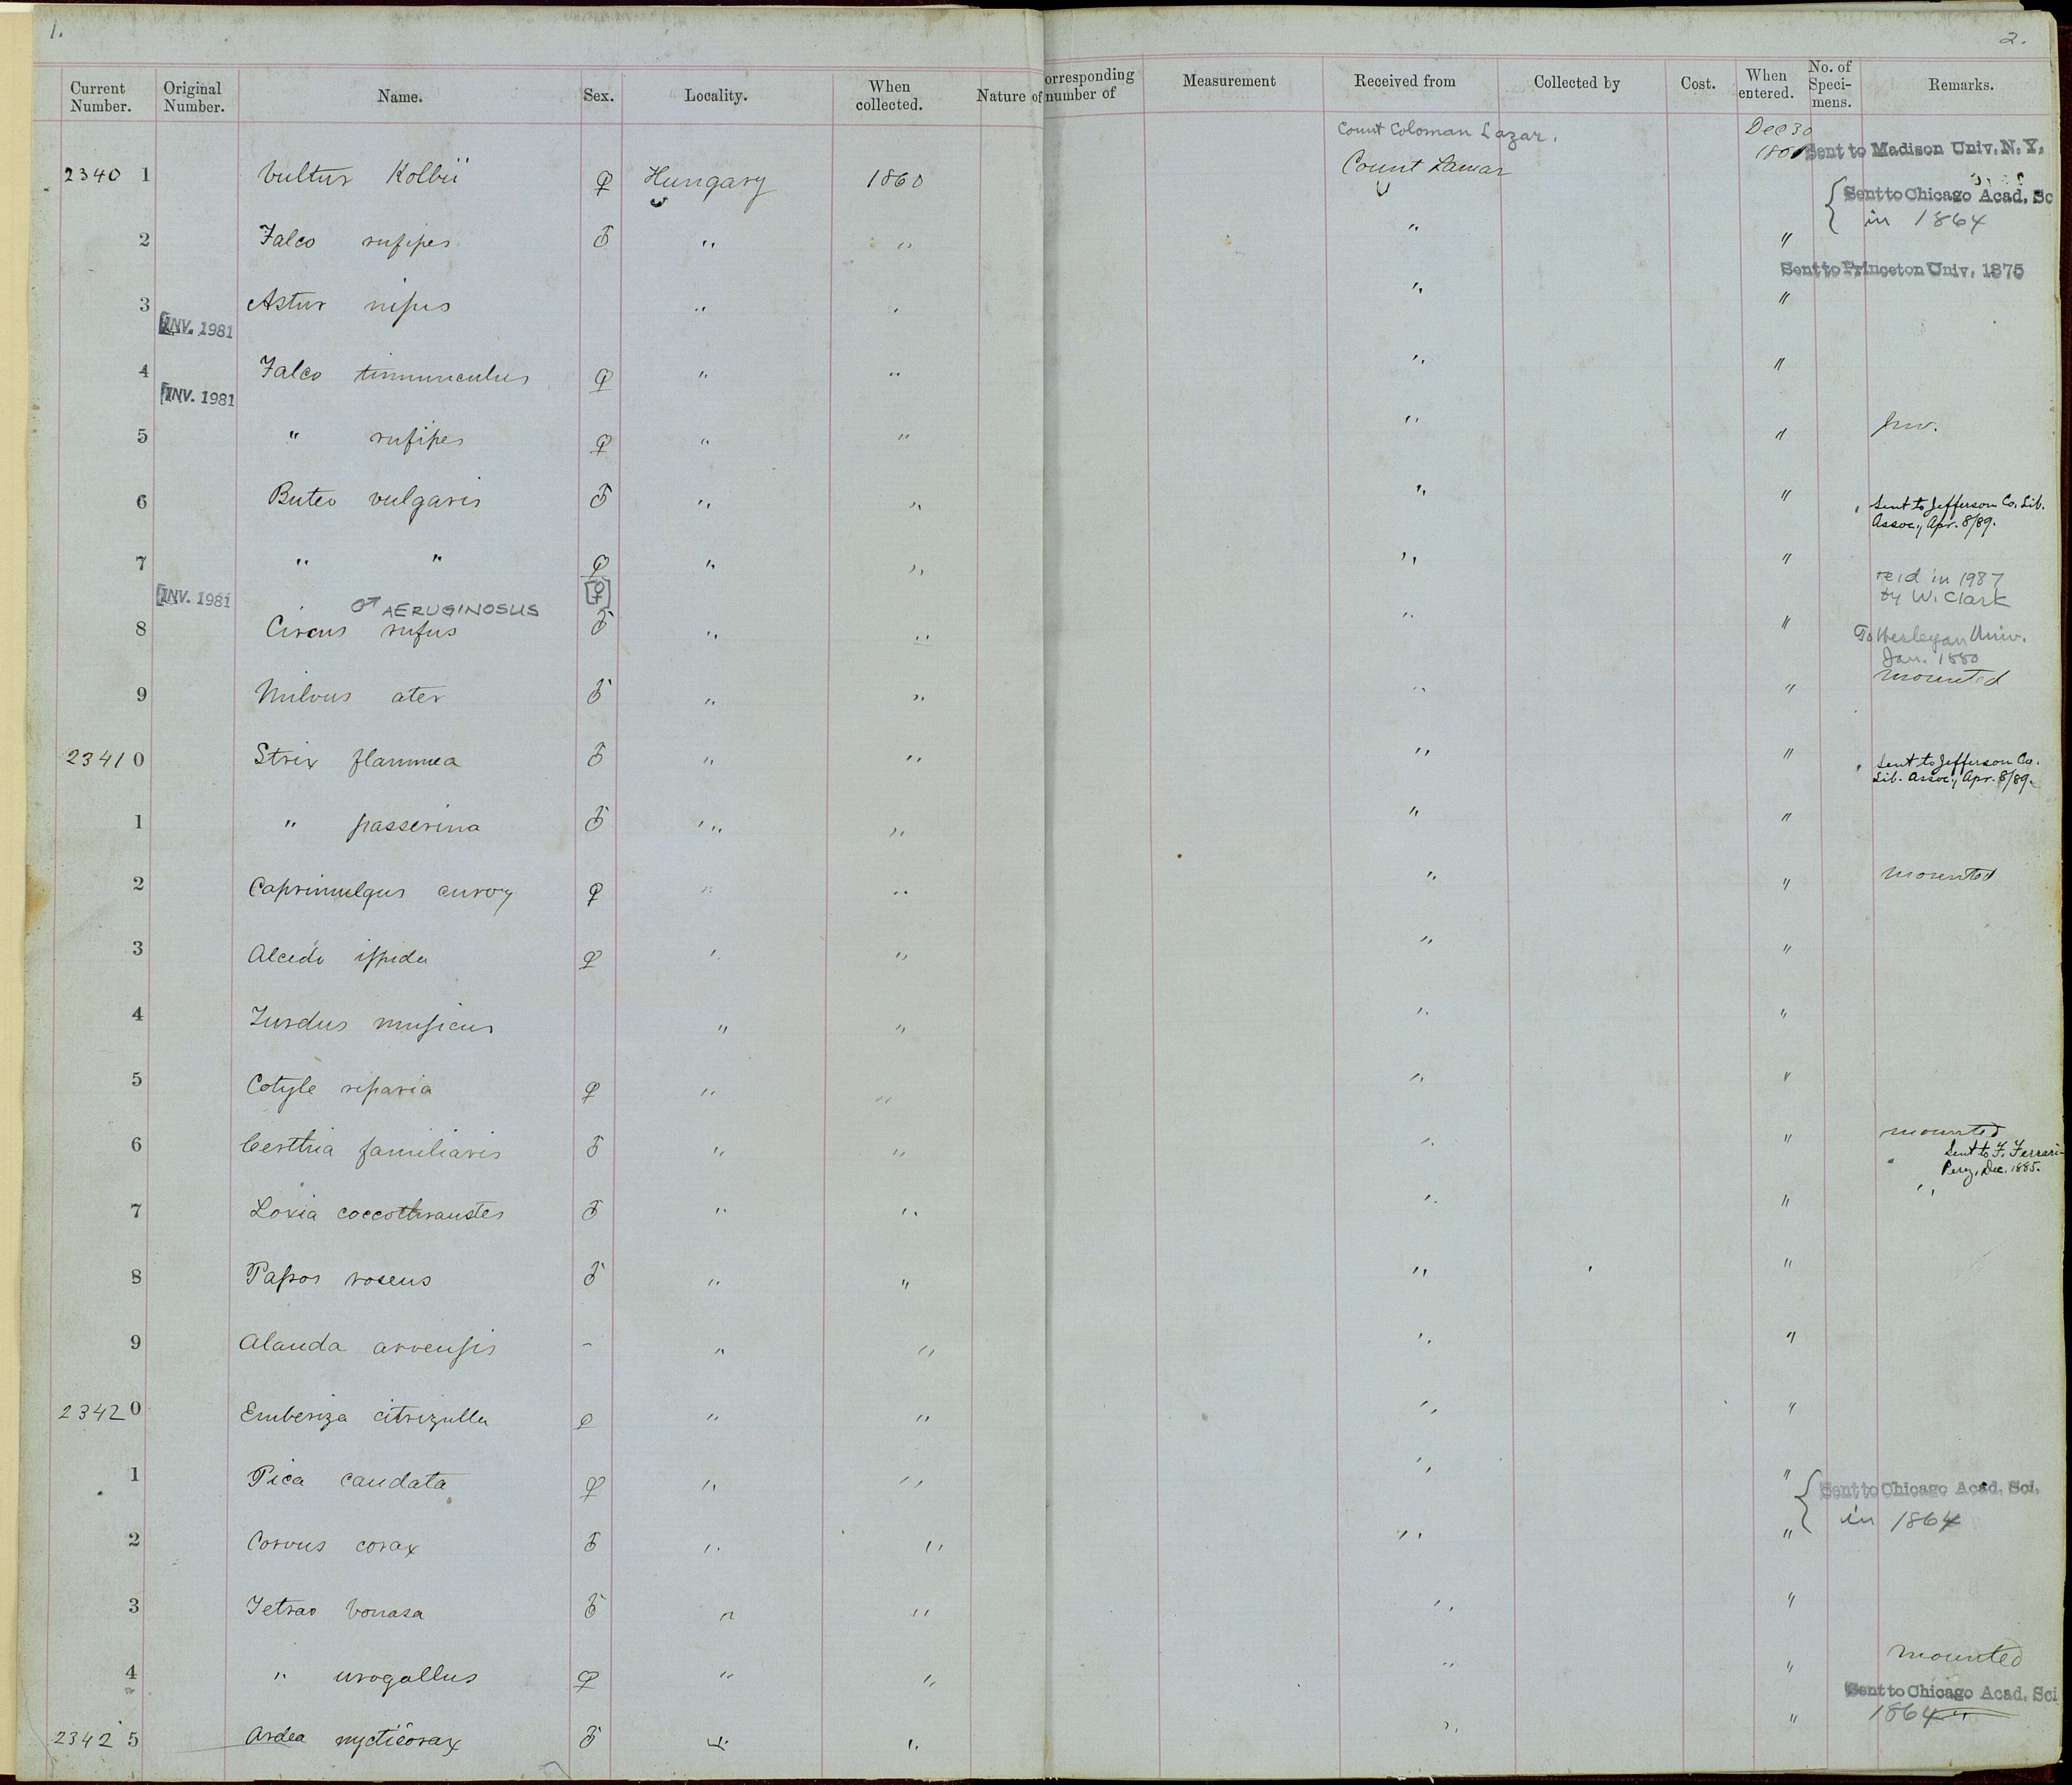 1.
2.
Current Number. Original Number. Name. Sex. Locality. When collected. Nature of orresponding number of Measurement Received from Collected by Cost. When entered. No. of Speci-mens. Remarks.
Count Coloman Lazar. Dec 30
2340 1 Vultur Kolbii ♀ Hungary 1860 Count Lazar 1861 Sent to Madison Univ. N. Y.
{ Sent to Chicago Acad. Sc
in 1864
2 Falco rufipes ♂ " " " "
Sent to Princeton Univ. 1875
3 Astur nisus " " " "
INV. 1981
4 Falco tinnunculus ♀ " " " "
INV. 1981
5 " rufipes ♀ " " " " Juv.
6 Buteo vulgaris ♂ " " " " Sent to Jefferson Co. Lib.
Assoc., Apr. 8/89.
7 " " ♀ " " " "
INV. 1981 ♂ AERUGINOSUS [♀] reid in 1987
by W. Clark
8 Circus rufus ♂ " " " " To Wesleyan Univ.
Jan. 1880
9 Milvus ater ♂ " " " " mounted
2341 0 Strix flammea ♂ " " " " Sent to Jefferson Co.
Lib. Assoc., Apr. 8/89.
1 " passerina ♂ " " " "
2 Caprimulgus europ ♀ " " " " mounted
3 Alcedo ispida ♀ " " " "
4 Turdus musicus " " " "
5 Cotyle riparia ♀ " " " "
6 Certhia familiaris ♂ " " " " mounted
Sent to F. Ferrari-
Perez, Dec. 1885.
7 Loxia coccothraustes ♂ " " " " "
8 Pastor roseus ♂ " " " "
9 Alauda arvensis - " " " "
2342 0 Emberiza citrinella ♀ " " " "
1 Pica caudata ♀ " " " " { Sent to Chicago Acad. Sci.
in 1864
2 Corvus corax ♂ " " " "
3 Tetrao bonasa ♂ " " " "
4 " urogallus ♀ " " " " mounted
Sent to Chicago Acad. Sci
1864 "
2342 5 Ardea nycticorax ♂ " " " "